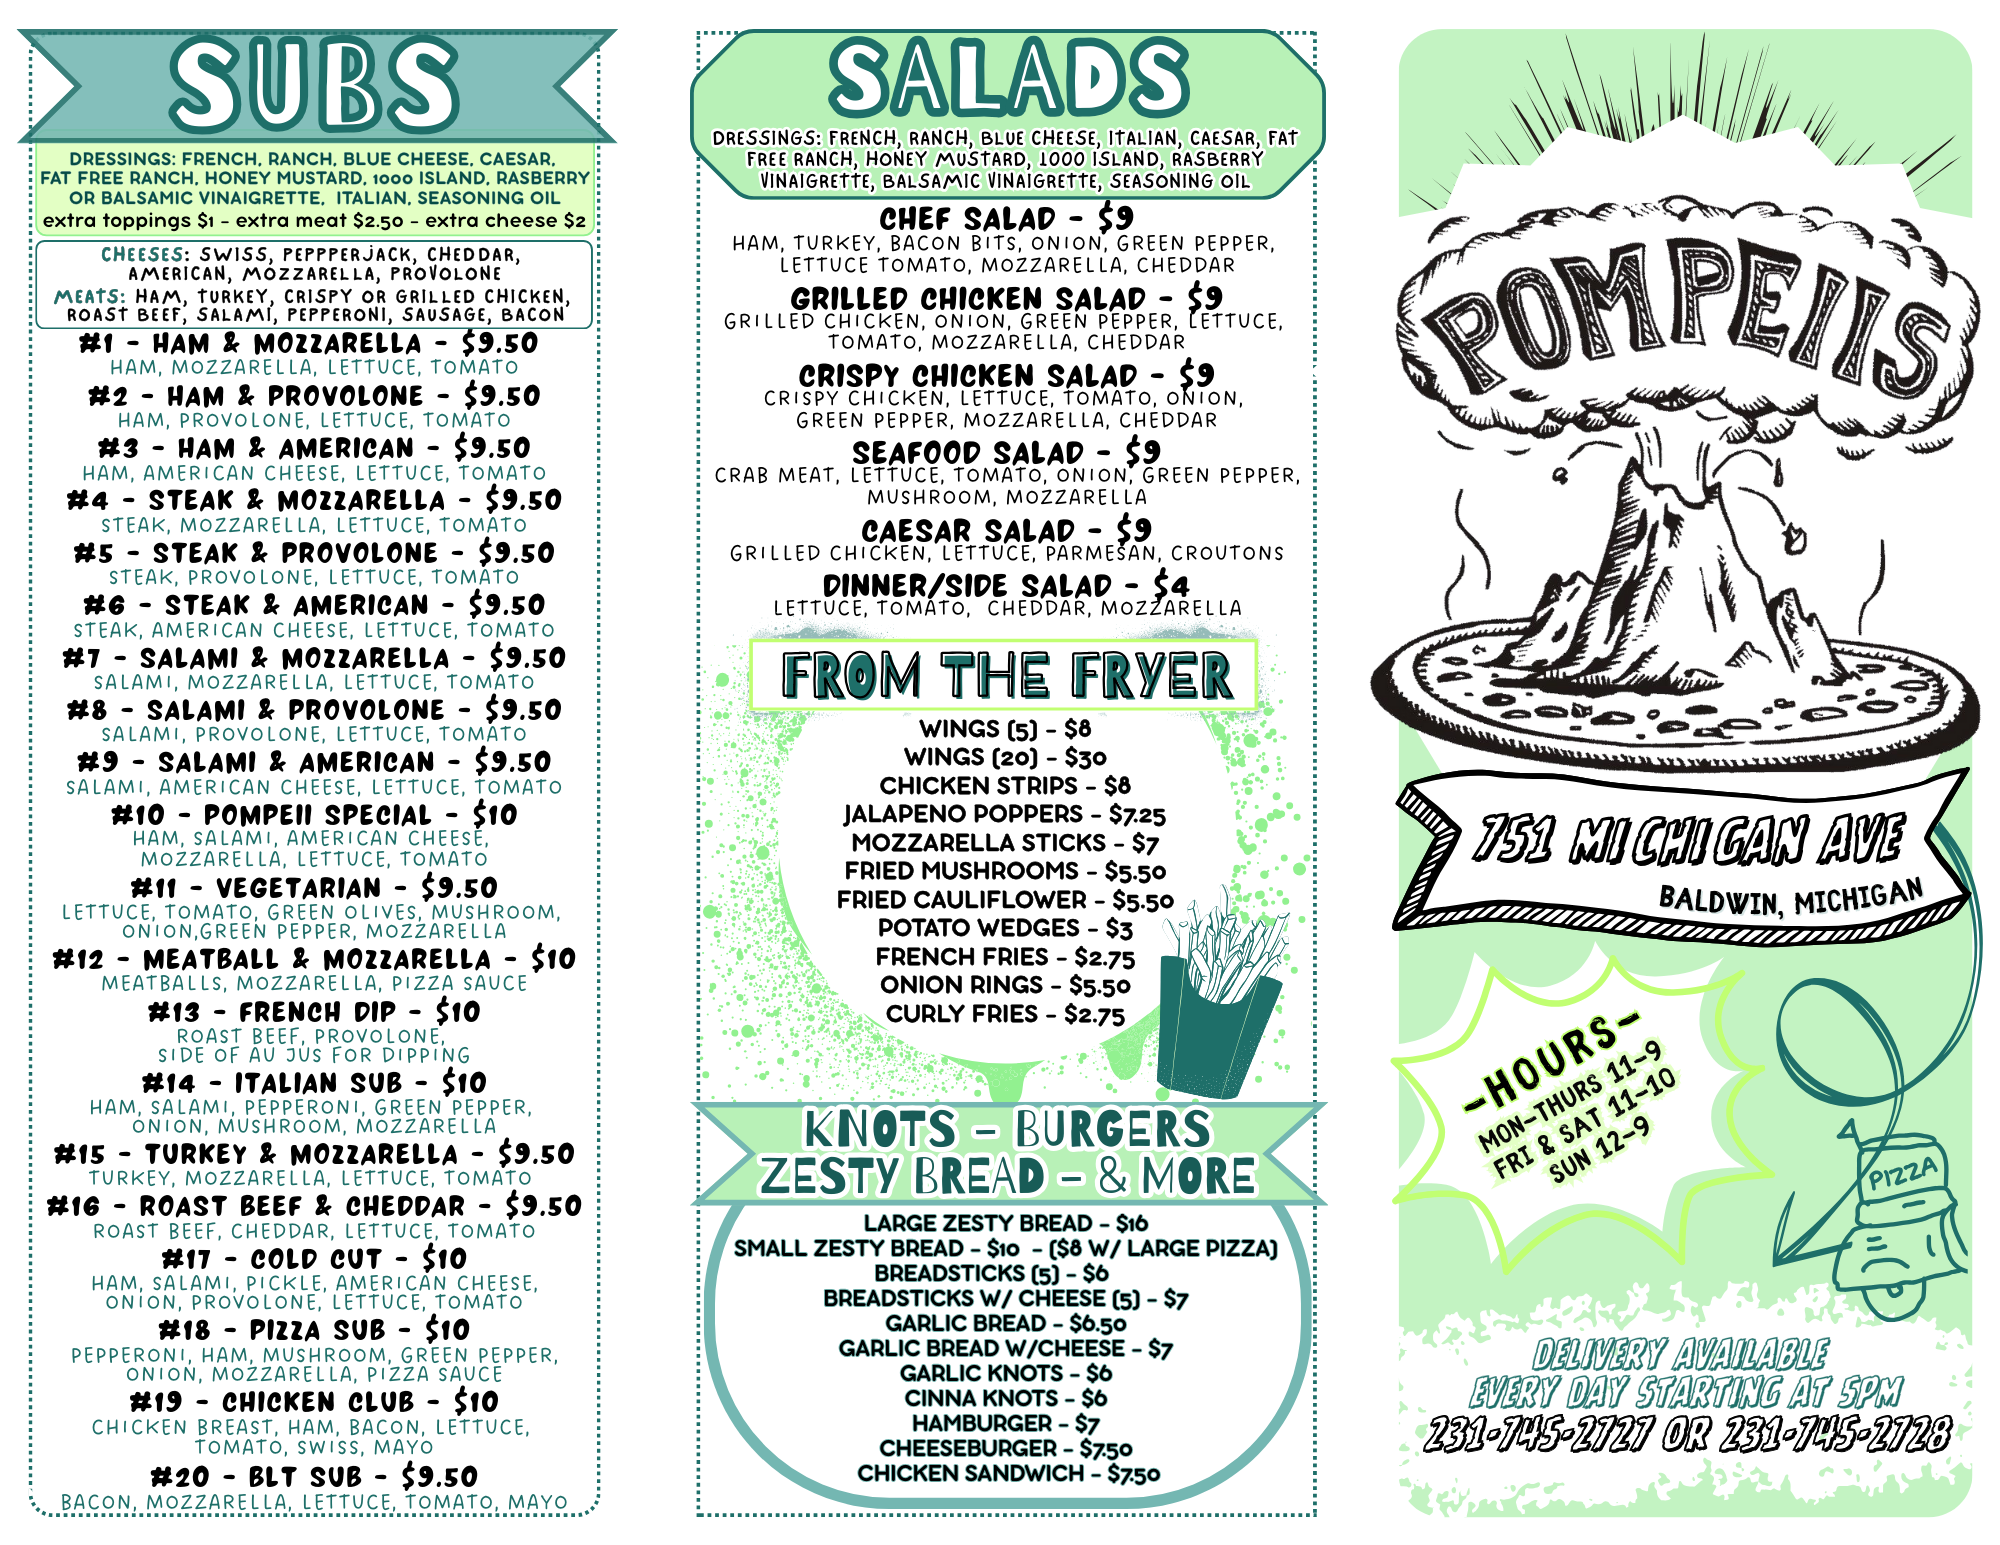 SUBS
DRESSINGS: FRENCH, RANCH, BLUE CHEESE, CAESAR,
FAT FREE RANCH, HONEY MUSTARD, 1000 ISLAND, RASBERRY
OR BALSAMIC VINAIGRETTE, ITALIAN, SEASONING OIL
extra toppings $1 - extra meat $2.50 - extra cheese $2
CHEESES: SWISS, PEPPPERJACK, CHEDDAR,
AMERICAN, MOZZARELLA, PROVOLONE
MEATS: HAM, TURKEY, CRISPY OR GRILLED CHICKEN,
ROAST BEEF, SALAMI, PEPPERONI, SAUSAGE, BACON
#1 - HAM & MOZZARELLA - $9.50
HAM, MOZZARELLA, LETTUCE, TOMATO
#2 - HAM & PROVOLONE - $9.50
HAM, PROVOLONE, LETTUCE, TOMATO
#3 - HAM & AMERICAN - $9.50
HAM, AMERICAN CHEESE, LETTUCE, TOMATO
#4 - STEAK & MOZZARELLA - $9.50
STEAK, MOZZARELLA, LETTUCE, TOMATO
#5 - STEAK & PROVOLONE - $9.50
STEAK, PROVOLONE, LETTUCE, TOMATO
#6 - STEAK & AMERICAN - $9.50
STEAK, AMERICAN CHEESE, LETTUCE, TOMATO
#7 - SALAMI & MOZZARELLA - $9.50
SALAMI, MOZZARELLA, LETTUCE, TOMATO
#8 - SALAMI & PROVOLONE - $9.50
SALAMI, PROVOLONE, LETTUCE, TOMATO
#9 - SALAMI & AMERICAN - $9.50
SALAMI, AMERICAN CHEESE, LETTUCE, TOMATO
#10 - POMPEII SPECIAL - $10
HAM, SALAMI, AMERICAN CHEESE,
MOZZARELLA, LETTUCE, TOMATO
#11 - VEGETARIAN - $9.50
LETTUCE, TOMATO, GREEN OLIVES, MUSHROOM,
ONION,GREEN PEPPER, MOZZARELLA
#12 - MEATBALL & MOZZARELLA - $10
MEATBALLS, MOZZARELLA, PIZZA SAUCE
#13 - FRENCH DIP - $10
ROAST BEEF, PROVOLONE,
SIDE OF AU JUS FOR DIPPING
#14 - ITALIAN SUB - $10
HAM, SALAMI, PEPPERONI, GREEN PEPPER,
ONION, MUSHROOM, MOZZARELLA
#15 - TURKEY & MOZZARELLA - $9.50
TURKEY, MOZZARELLA, LETTUCE, TOMATO
#16 - ROAST BEEF & CHEDDAR - $9.50
ROAST BEEF, CHEDDAR, LETTUCE, TOMATO
#17 - COLD CUT - $10
HAM, SALAMI, PICKLE, AMERICAN CHEESE,
ONION, PROVOLONE, LETTUCE, TOMATO
#18 - PIZZA SUB - $10
PEPPERONI, HAM, MUSHROOM, GREEN PEPPER,
ONION, MOZZARELLA, PIZZA SAUCE
#19 - CHICKEN CLUB - $10
CHICKEN BREAST, HAM, BACON, LETTUCE,
TOMATO, SWISS, MAYO
#20 - BLT SUB - $9.50
BACON, MOZZARELLA, LETTUCE, TOMATO, MAYO
SALADS
DRESSINGS: FRENCH, RANCH, BLUE CHEESE, ITALIAN, CAESAR, FAT
FREE RANCH, HONEY MUSTARD, 1000 ISLAND, RASBERRY
VINAIGRETTE, BALSAMIC VINAIGRETTE, SEASONING OIL
CHEF SALAD - $9
HAM, TURKEY, BACON BITS, ONION, GREEN PEPPER,
LETTUCE TOMATO, MOZZARELLA, CHEDDAR
GRILLED CHICKEN SALAD - $9
GRILLED CHICKEN, ONION, GREEN PEPPER, LETTUCE,
TOMATO, MOZZARELLA, CHEDDAR
CRISPY CHICKEN SALAD - $9
CRISPY CHICKEN, LETTUCE, TOMATO, ONION,
GREEN PEPPER, MOZZARELLA, CHEDDAR
SEAFOOD SALAD - $9
CRAB MEAT, LETTUCE, TOMATO, ONION, GREEN PEPPER,
MUSHROOM, MOZZARELLA
CAESAR SALAD - $9
GRILLED CHICKEN, LETTUCE, PARMESAN, CROUTONS
DINNER/SIDE SALAD - $4
LETTUCE, TOMATO, CHEDDAR, MOZZARELLA
FROM THE FRYER
WINGS (5) - $8
WINGS (20) - $30
CHICKEN STRIPS - $8
JALAPENO POPPERS - $7.25
MOZZARELLA STICKS - $7
FRIED MUSHROOMS - $5.50
FRIED CAULIFLOWER - $5.50
POTATO WEDGES - $3
FRENCH FRIES - $2.75
ONION RINGS - $5.50
CURLY FRIES - $2.75
KNOTS - BURGERS
ZESTY BREAD - & MORE
LARGE ZESTY BREAD - $16
SMALL ZESTY BREAD - $10 - ($8 W/ LARGE PIZZA)
BREADSTICKS (5) - $6
BREADSTICKS W/ CHEESE (5) - $7
GARLIC BREAD - $6.50
GARLIC BREAD W/CHEESE - $7
GARLIC KNOTS - $6
CINNA KNOTS - $6
HAMBURGER - $7
CHEESEBURGER - $7.50
CHICKEN SANDWICH - $7.50
POMPEIIS
751 MICHIGAN AVE
BALDWIN, MICHIGAN
-HOURS-
MON-THURS 11-9
FRI & SAT 11-10
SUN 12-9
PIZZA
DELIVERY AVAILABLE
EVERY DAY STARTING AT 5PM
231-745-2727 OR 231-745-2728